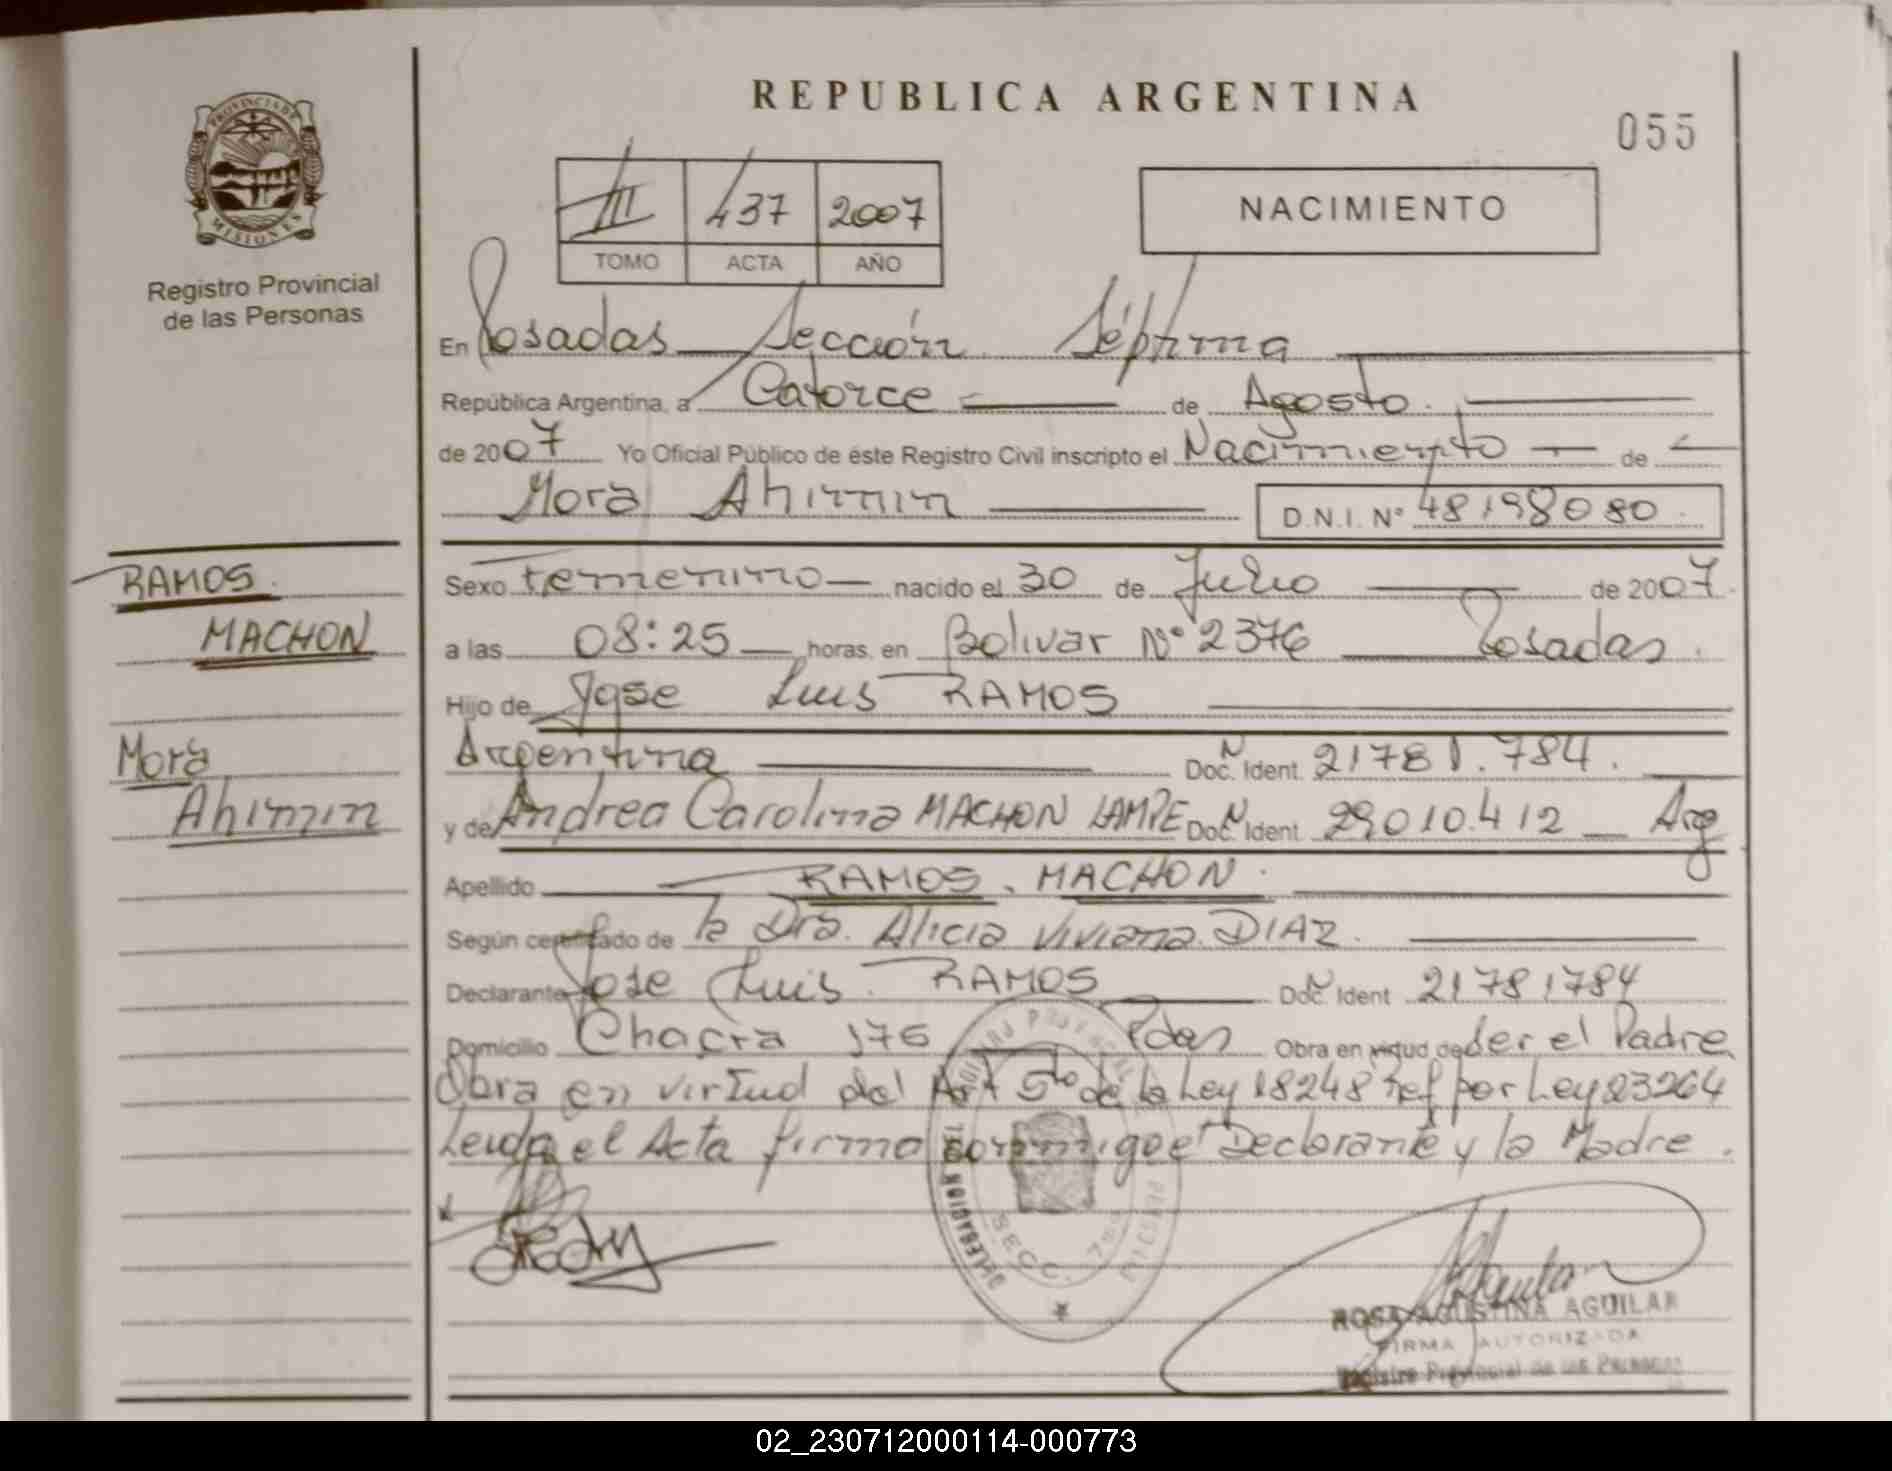 REPUBLICA ARGENTINA
055
PROVINCIA DE MISIONES
Registro Provincial
de las Personas
III 437 2007
TOMO ACTA AÑO
NACIMIENTO
En Posadas Sección Séptima
República Argentina, a Catorce de Agosto.
de 2007 Yo Oficial Público de éste Registro Civil inscripto el Nacimiento de
Mora Ahimin D.N.I. Nº 48198080.
RAMOS.
MACHON
Mora
Ahimin
Sexo Femenino nacido el 30 de Julio de 2007.
a las 08:25 horas, en Bolivar Nº 2376 Posadas.
Hijo de Jose Luis RAMOS
Argentina Doc. Ident. 21781.784.
y de Andrea Carolina MACHON LAMPE Doc. Ident. 29010.412 Arg
Apellido RAMOS. MACHON.
Según certificado de la Dra. Alicia Viviana DIAZ.
Declarante Jose Luis. RAMOS Doc. Ident 21781784
Domicilio Chacra 176 Pdas Obra en virtud de ser el Padre
Obra en virtud del Art 5to de la Ley 18248 ref por Ley 23264
Leida el Acta firma conmigo el Declarante y la Madre.
DELEGACION
SECC. 7ma
ROSA AGUSTINA AGUILAR
FIRMA AUTORIZADA
Registro Provincial de las Personas
02_230712000114-000773